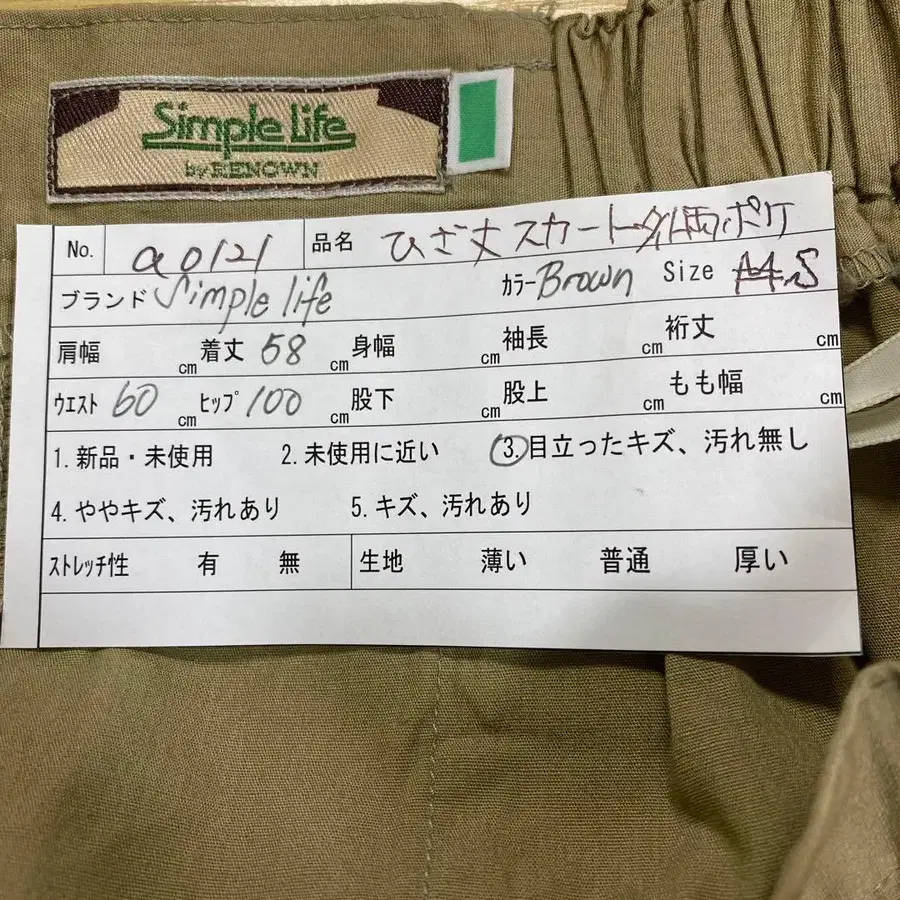 Simple Life
by RENOWN
No. a0121 品名 ひざ丈スカート 両ポケ
ブランド Simple life カラー Brown Size S
肩幅 cm 着丈 58 cm 身幅 cm 袖長 cm 裄丈 cm
ウエスト 60 cm ヒップ 100 cm 股下 cm 股上 cm もも幅 cm
1. 新品・未使用 2. 未使用に近い 3. 目立ったキズ、汚れ無し
4. ややキズ、汚れあり 5. キズ、汚れあり
ストレッチ性 有 無 生地 薄い 普通 厚い